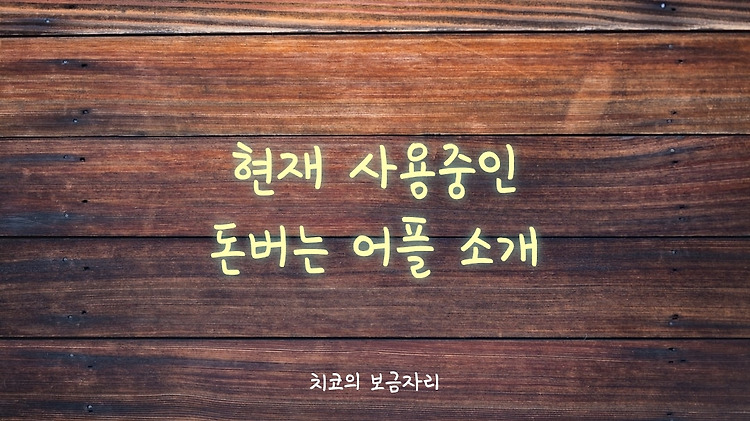 현재 사용중인
돈버는 어플 소개
치코의 보금자리